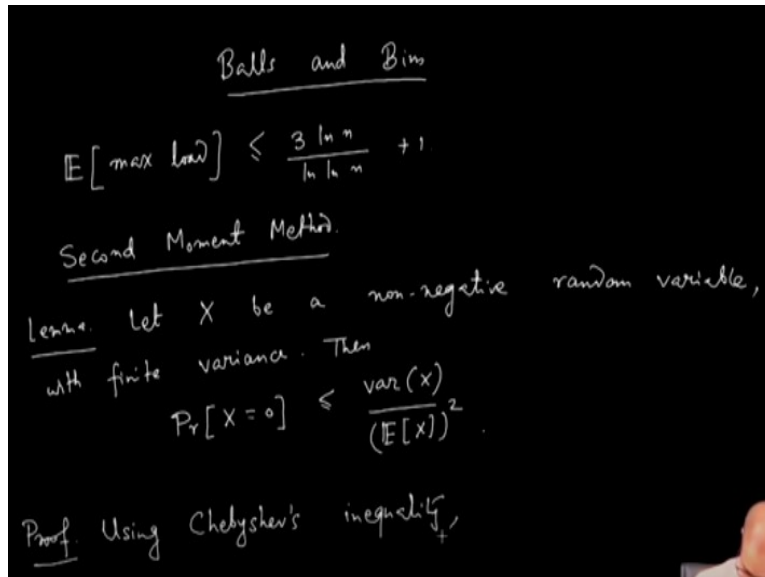 Balls and Bins
E[max load] ≤ 3 ln n / ln ln n + 1.
Second Moment Method.
Lemma. Let X be a non-negative random variable,
with finite variance. Then
Pr[X=0] ≤ var(X) / (E[X])².
Proof. Using Chebyshev's inequality,